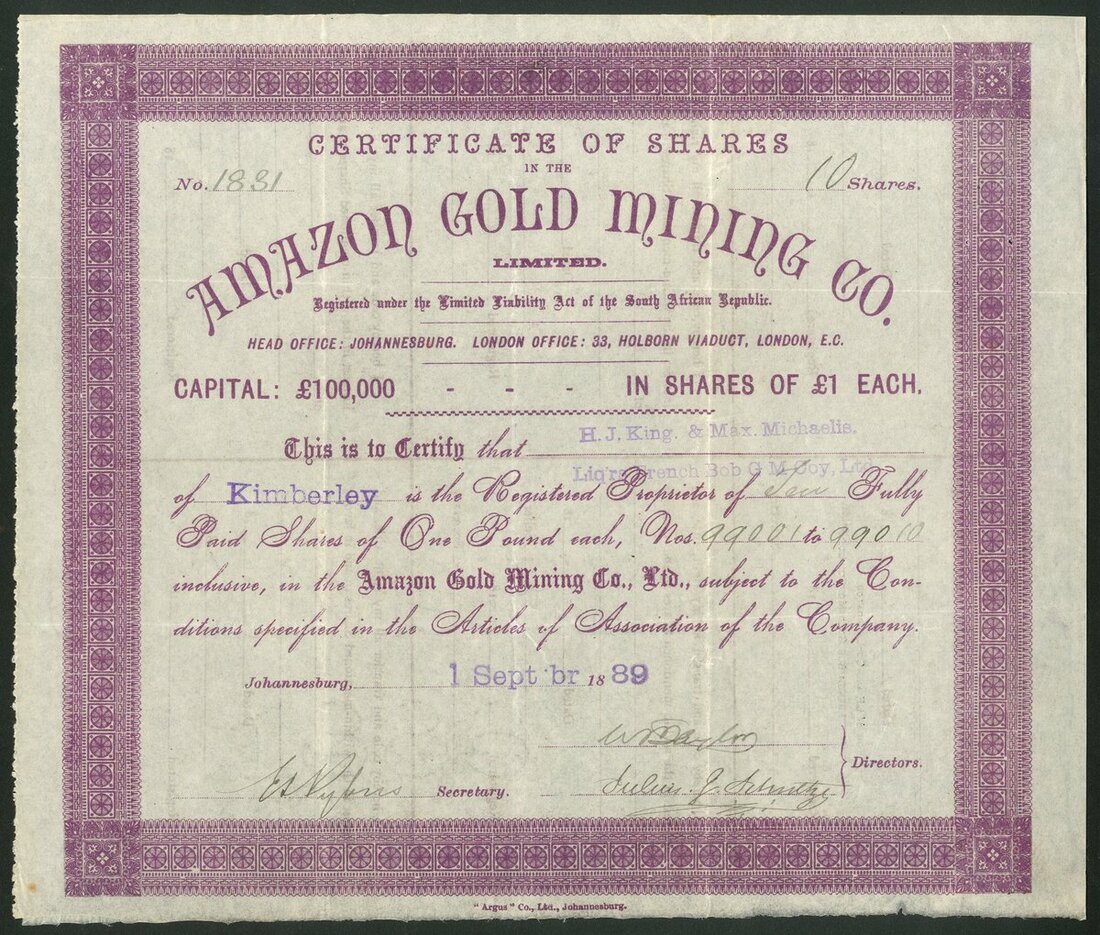 CERTIFICATE OF SHARES
IN THE
No. 1831
10 Shares.
AMAZON GOLD MINING CO.
LIMITED.
Registered under the Limited Liability Act of the South African Republic.
HEAD OFFICE: JOHANNESBURG. LONDON OFFICE: 33, HOLBORN VIADUCT, LONDON, E.C.
CAPITAL: £100,000 - - - IN SHARES OF £1 EACH.
H.J. King. & Max. Michaelis.
This is to Certify that
Liq'rs French Bob G M Coy, Ltd
of Kimberley is the Registered Proprietor of Ten Fully
Paid Shares of One Pound each, Nos. 99001 to 99010
inclusive, in the Amazon Gold Mining Co., Ltd., subject to the Con-
ditions specified in the Articles of Association of the Company.
Johannesburg, 1 Sept br 1889
Directors.
Secretary.
Julius J.
"Argus" Co., Ltd., Johannesburg.